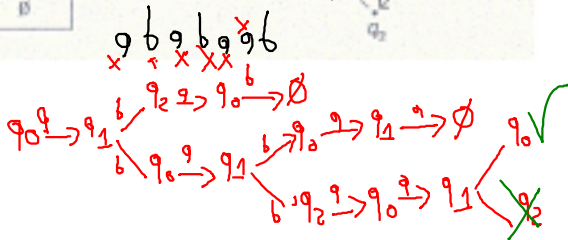 ∅
q2
a b a b a a b
x x x x x x
q0 a→ q1 b q2 a→ q0 b→ ∅
b q0 a→ q1 b q0 a→ q1 a→ ∅
b q2 a→ q0 a→ q1 q0 ✓
q2